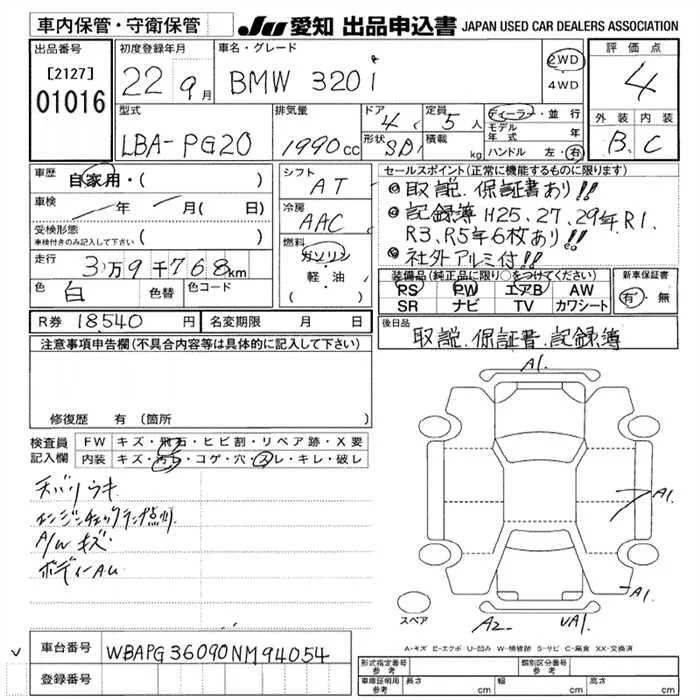 車内保管・守衛保管
JU 愛知 出品申込書 JAPAN USED CAR DEALERS ASSOCIATION
出品番号
[2127]
01016
初度登録年月
22 9月
車名・グレード
BMW 320i
2WD
4WD
評価点
4
外装 内装
B C
型式
LBA-PG20
排気量
1990cc
ドア 4
形状 SD
定員 5人
積載 kg
ディーラー・並行
モデル年式 年
ハンドル 左・右
車歴 自家用・( )
車検 年 月( 日)
受検形態
車検付きのみ記入して下さい ( )
走行 3万9千768km
色 白 色替 色コード
シフト AT
冷房 AAC
燃料
ガソリン
・
軽・油
( )
セールスポイント(正常に機能するものに限ります)
◎取説.保証書あり!!
◎記録簿H25、27、29年R1.
R3、R5年6枚あり!!
◎社外アルミ付!!
装備品(純正品に限り○をつけてください)
PS PW エアB AW
SR ナビ TV カワシート
新車保証書
有・無
R券 18540円 名変期限 月 日
後日品
取説.保証書.記録簿
注意事項申告欄(不具合内容等は具体的に記入して下さい)
修復歴 有(箇所 )
検査員
記入欄
FW キズ・飛石・ヒビ割・リペア跡・X要
内装 キズ・汚れ・コゲ・穴・スレ・キレ・破レ
天バリウキ
エンジンチェックランプ点灯
A/W キズ
ボディーAU
A1.
A1.
A1.
A2 UA1.
スペア
A-キズ E-エクボ U-凹み W-補修跡 S-サビ C-腐食 XX-交換済
車台番号 WBAPG36090NM94054
登録番号
形式指定番号
参考
類別区分番号
参考
車庫証明用
参考
長さ cm 幅 cm 高さ cm